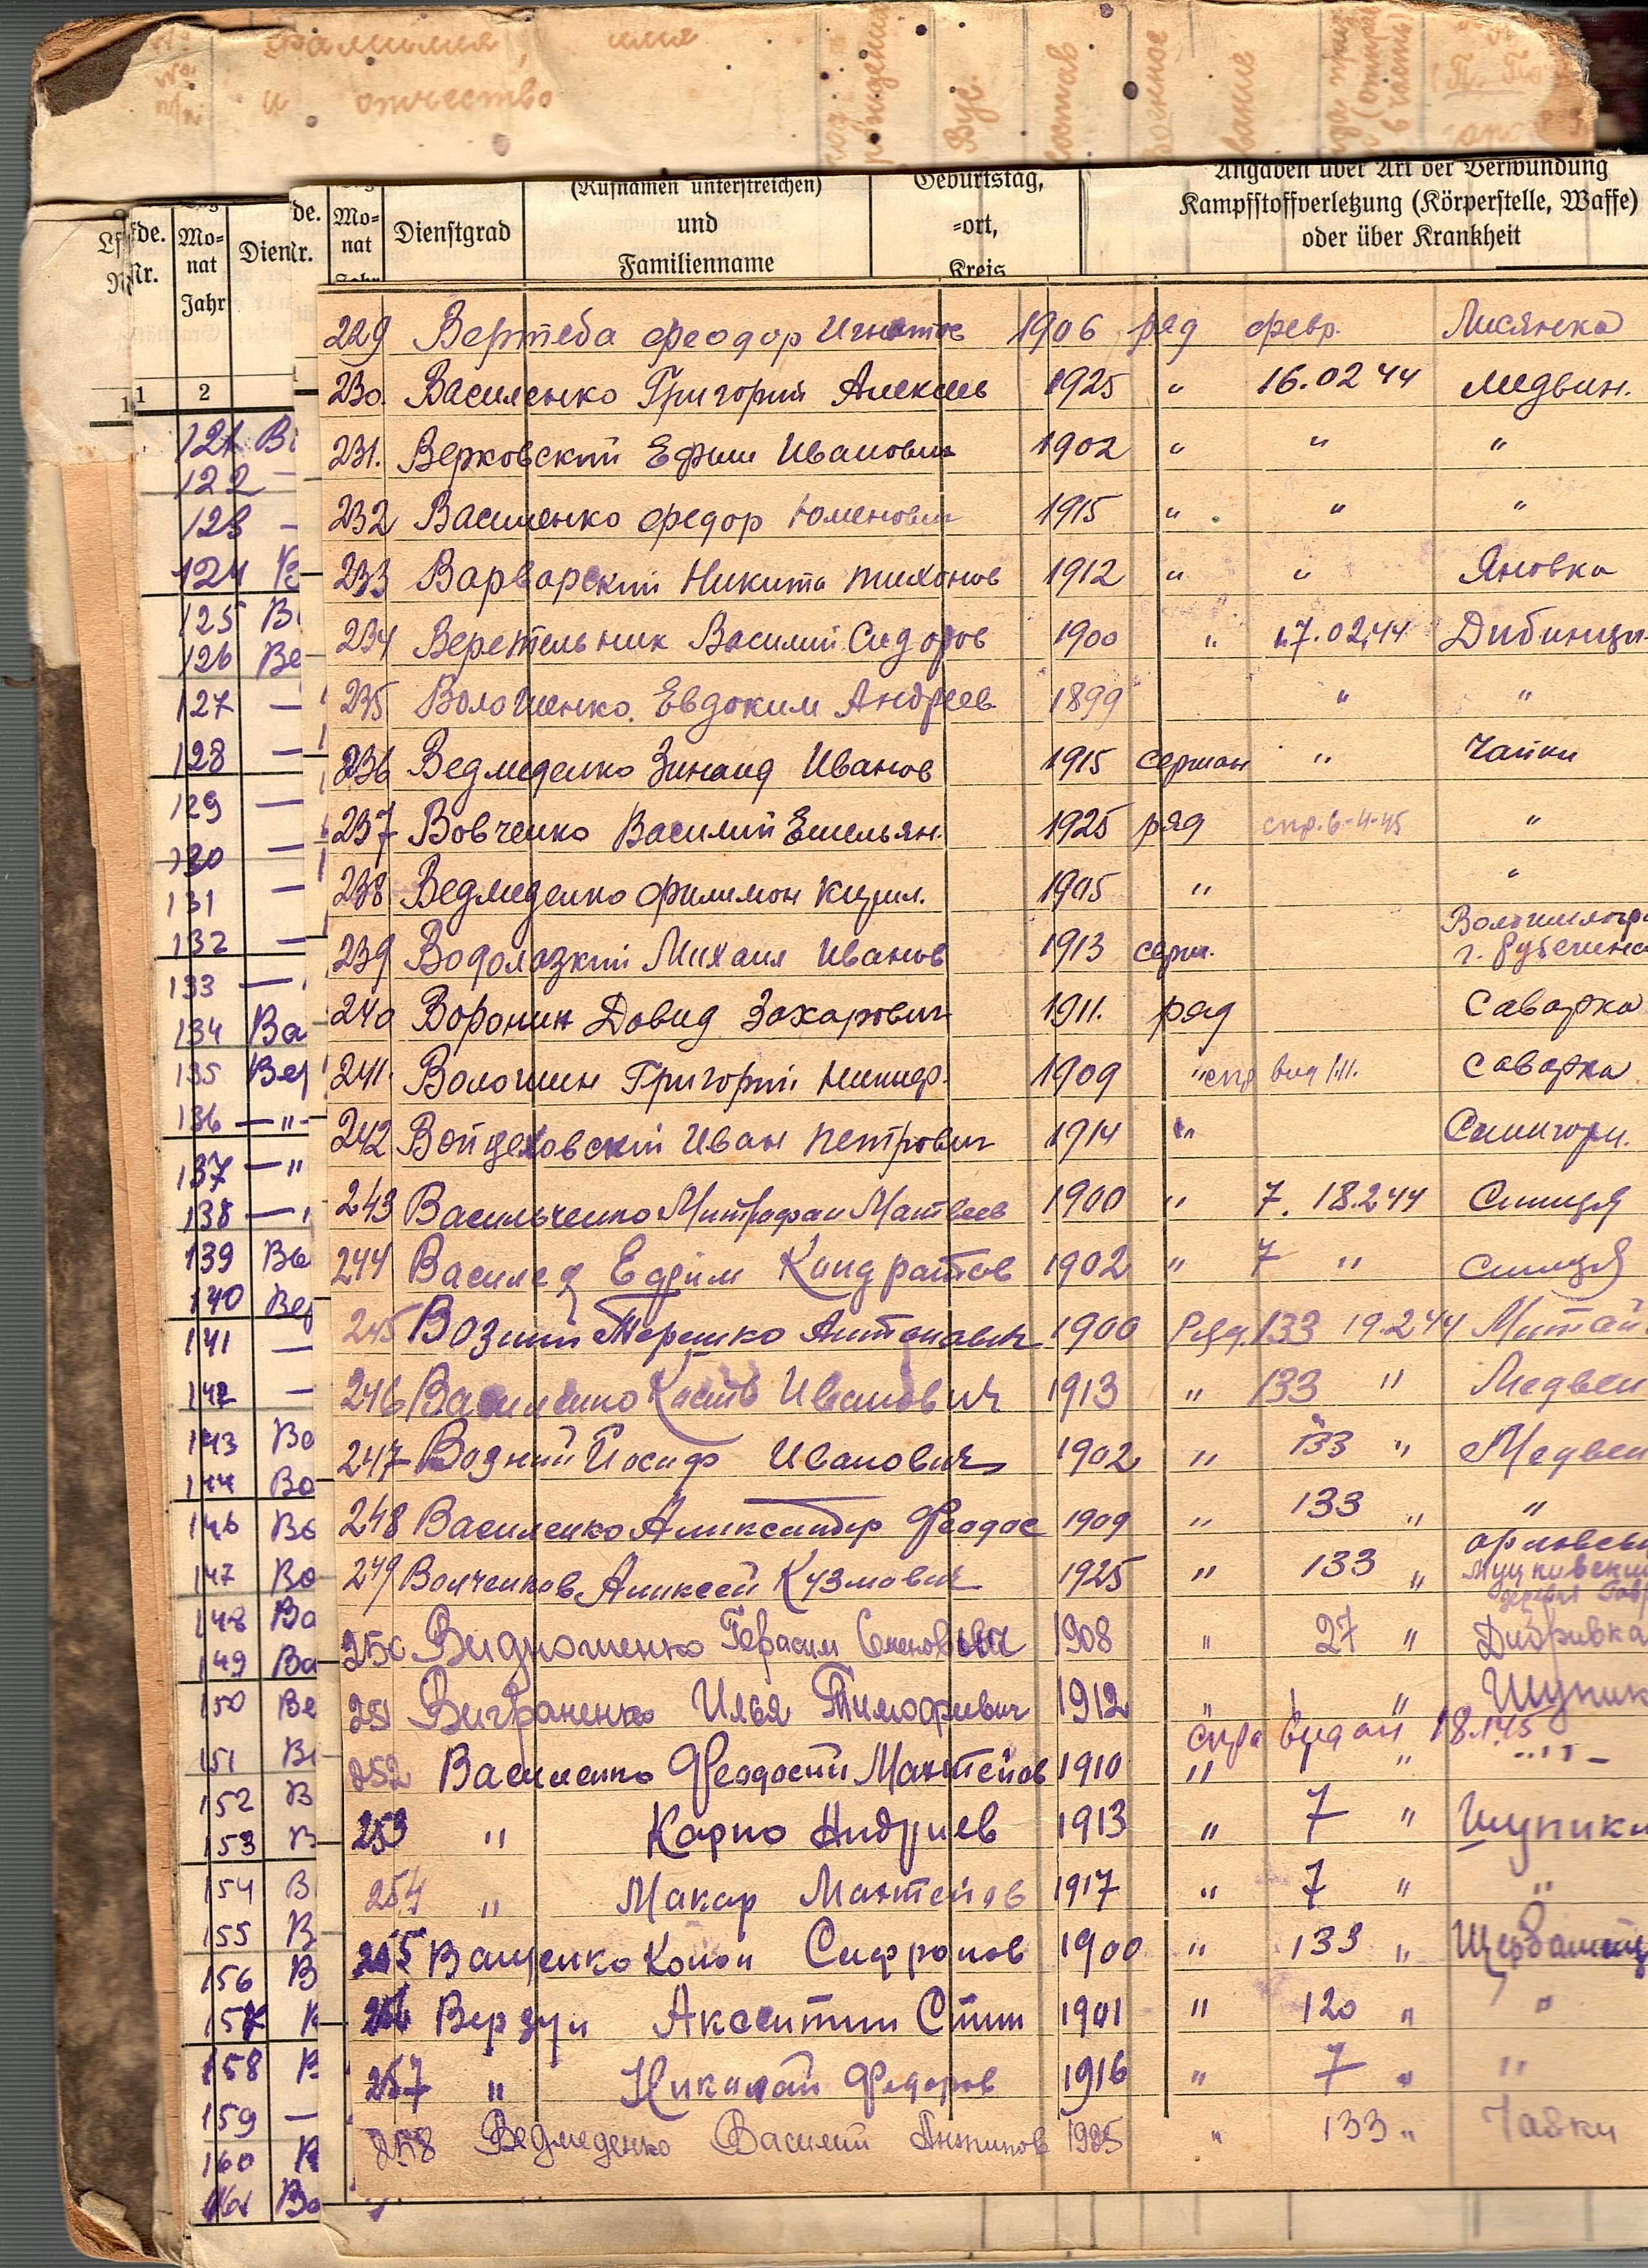 фамилия, имя
и отчество
№ п/п
год рождения
Вус
состав
военное
звание
(Rufnamen unterstreichen)
und
Familienname
Geburtstag,
-ort,
Kreis
Angaben über Art der Verwundung
Kampfstoffverletzung (Körperstelle, Waffe)
oder über Krankheit
Mo-
nat
Dienstgrad
Mo-
nat
Jahr
1 2
229 Вертеба Феодор Игнатов 1906 ряд февр. Лисянка
230. Василенко Григорий Алексеев 1925 " 16.02 44 Медвин.
231. Верковский Ефим Иванович 1902 " " "
232 Василенко Федор Юменович 1915 " " "
233 Варварский Никита Тихонов 1912 " " Яновка
234 Веретельник Василий Сидоров 1900 " 17.02.44 Дибинци
235 Волошенко Евдоким Андреев 1899 " "
236 Ведмеденко Зинаид Иванов 1915 сержан " Чайки
237 Вовченко Василий Емельян. 1925 ряд спр. 6-4-45 "
238 Ведмеденко Филимон Кирил. 1905 " "
239 Водолазкий Михаил Иванов 1913 серж. г. Рубежное
240 Воронин Давид Захарович 1911. ряд Саварка
241. Волошин Григорий Никиф. 1909 " Саварка
242 Войцеховский Иван Петрович 1914 "
243 Васильченко Митрофан Матвеев 1900 " 7. 18.2.44 Синиця
244 Ефим Кондратов 1902 " 7 " Синиця
245 Возний Терешко Антонович 1900 Ряд. 133 19.2.44
246 Василенко Кость Иванович 1913 " 133 " Медвен
247 Водний Йосиф Иванович 1902 " 133 " Медвен
248 Василенко Александр Феодос 1909 " 133 " "
249 Волченков Алексей Кузмович 1925 " 133 "
250 Видношенко Герасим Семенович 1908 " 27 " Дибривка
251 Виграненко Илья Тимофиевич 1912 " " Шупик
спра видан 18.1.45
252 Василенко Феодосий Мантейов 1910 " "
253 " Карпо Андриев 1913 " 7 " Шупики
254 " Макар Мантейов 1917 " 7 " "
255 Ващенко Конон Сифронов 1900 " 133 "
256 Верзун 1901 " 120 " "
257 " Николай Федоров 1916 " 7 " "
258 Ведмеденко Василий 1925 " 133 " Чайки
121
122
123
124
125
126
127
128
129
130
131
132
133
134
135
136
137
138
139
140
141
142
143
144
146
147
148
149
150
151
152
153
154
155
156
157
158
159
160
161